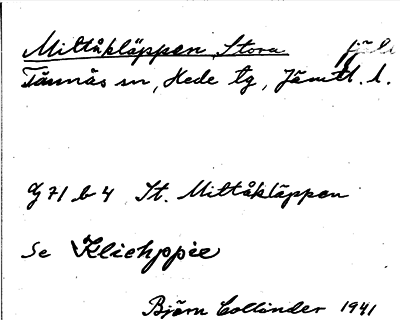 Mittåkläppen, Stora fjäll
Tännäs sn, Hede tg, Jämtl. l.
G 71 b 4 St. Mittåkläppen
Se Kliehppie
Björn Collinder 1941